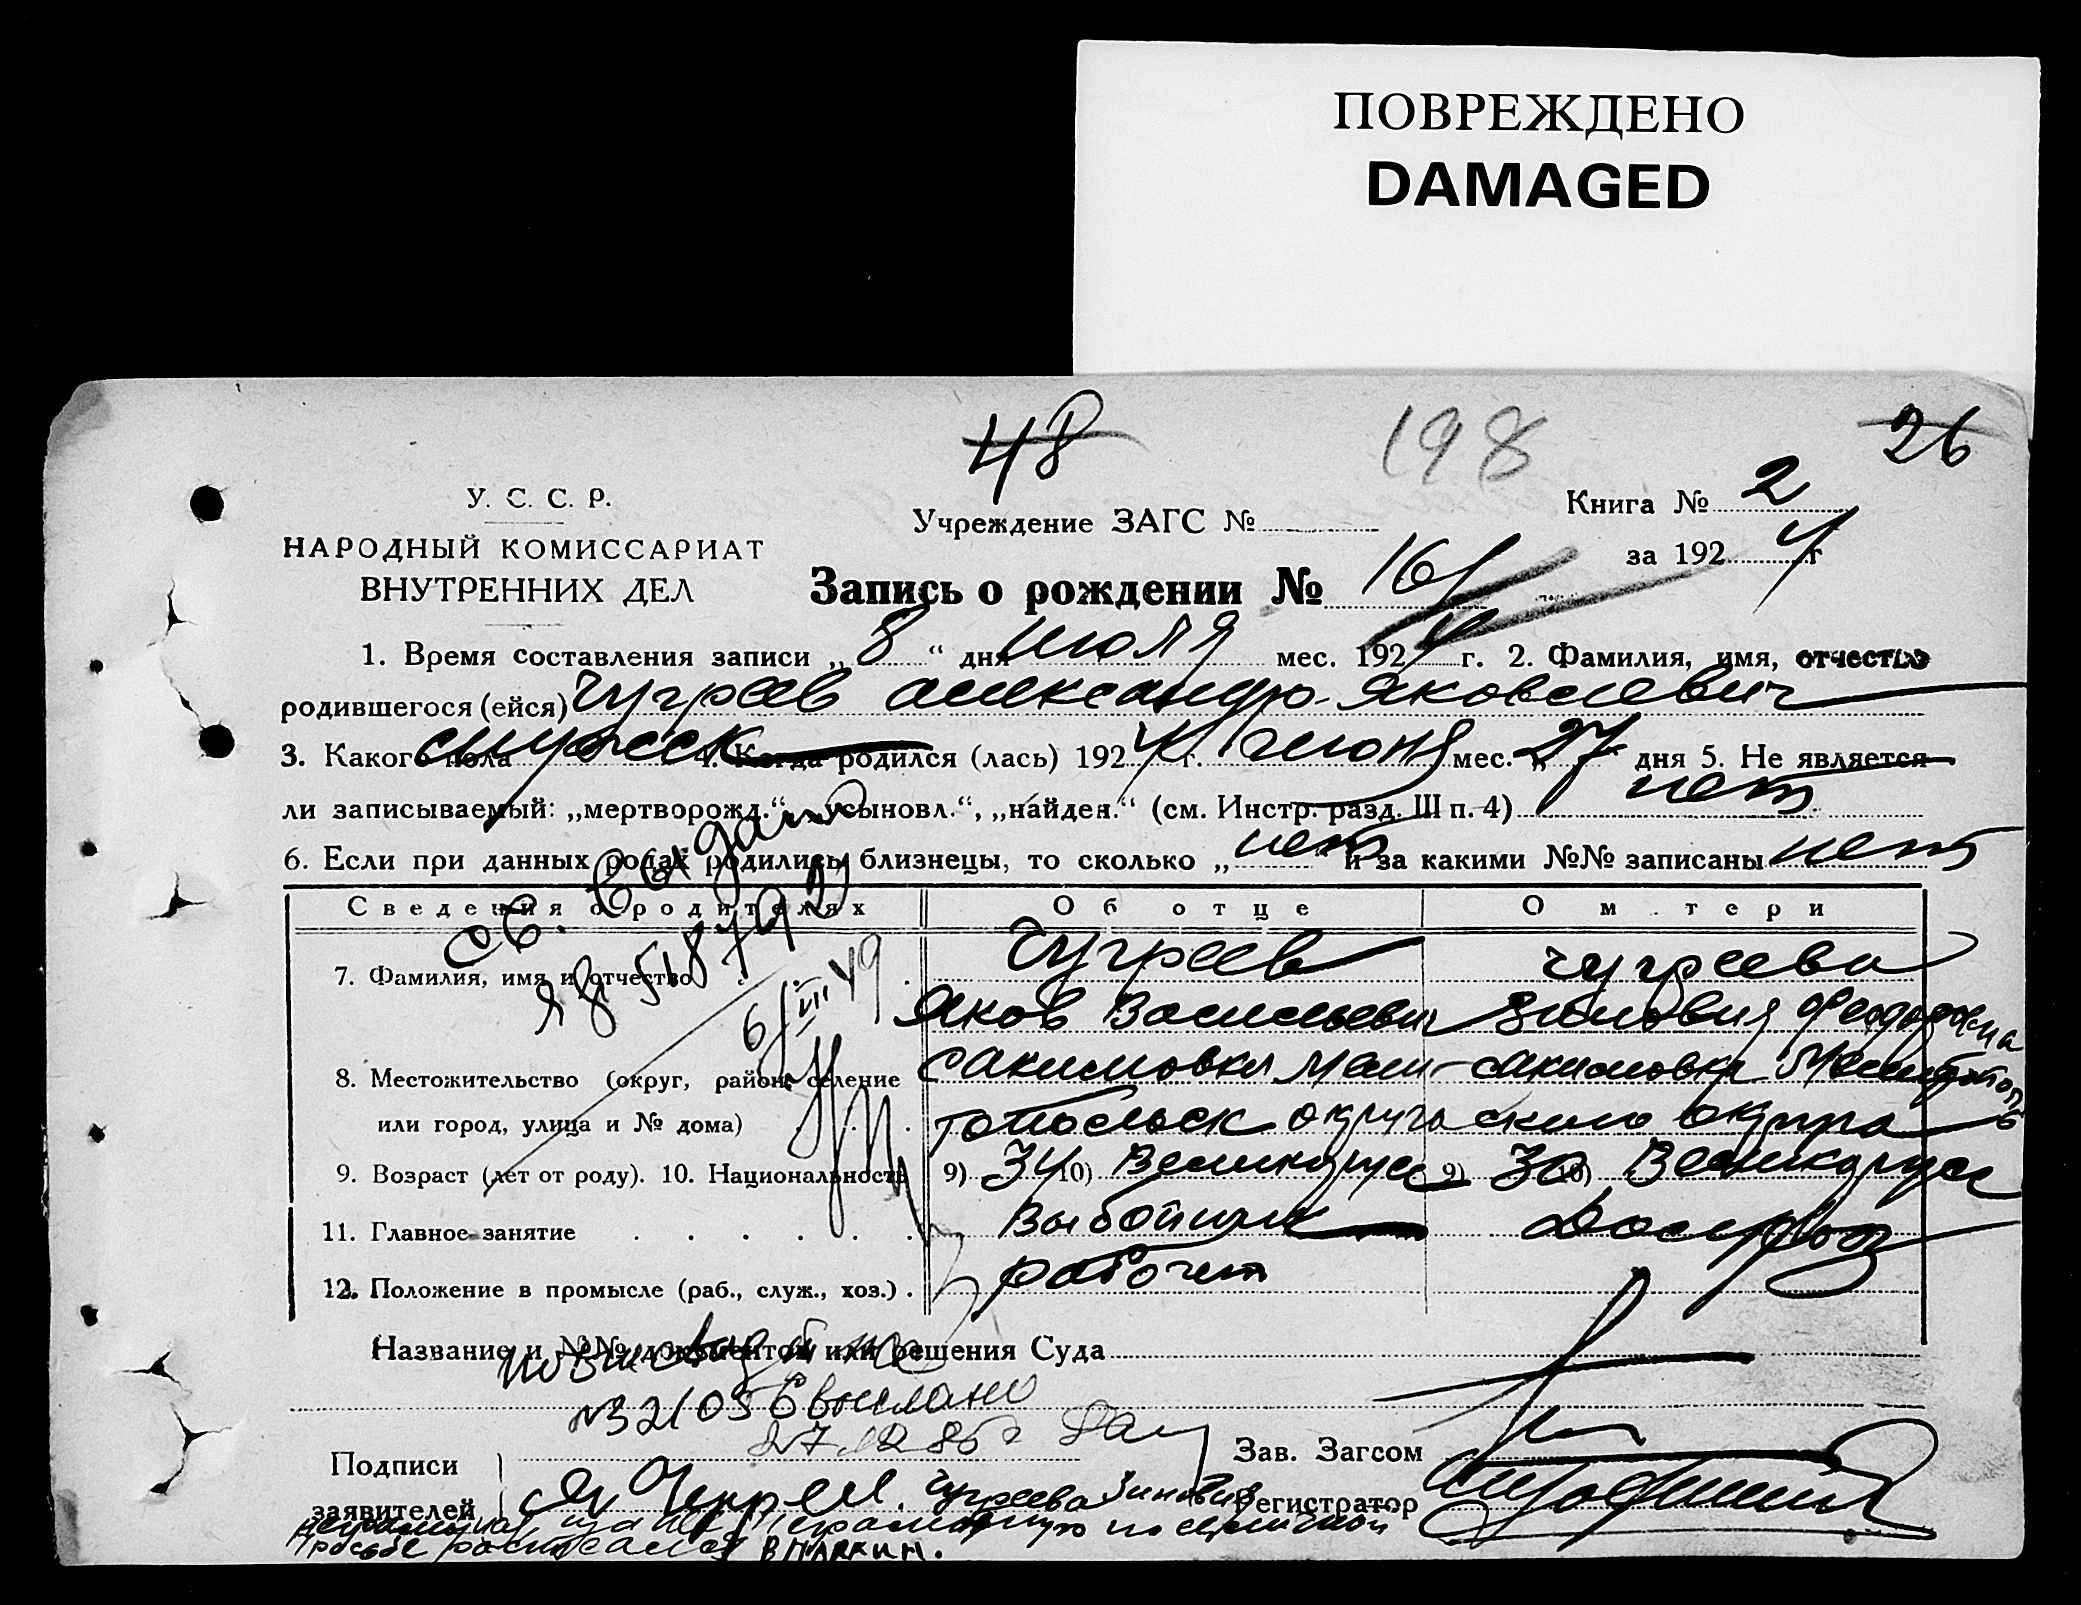 ПОВРЕЖДЕНО
DAMAGED
48
198
26
У. С. С. Р.
НАРОДНЫЙ КОМИССАРИАТ
ВНУТРЕННИХ ДЕЛ
Учреждение ЗАГС №
Книга № 2
за 1924 г
Запись о рождении № 161
1. Время составления записи „8“ дня июля мес. 1924 г. 2. Фамилия, имя, отчество
родившегося (ейся) Чугреев Александр Яковлевич
3. Какого пола мужск 4. Когда родился (лась) 1924 г. июня мес. „27“ дня 5. Не является
ли записываемый: „мертворожд.“ „усыновл.“, „найден.“ (см. Инстр. разд. III п. 4) нет
6. Если при данных родах родились близнецы, то сколько „нет“ и за какими №№ записаны нет
св. выдано
6/VIII 49
Сведения о родителях Об отце О м тери
7. Фамилия, имя и отчество Чугреев Чугреева
Яков Васильевич Зиновия Феодоровна
8. Местожительство (округ, район, селение Акимовка Мели- Акимовка Мелитополь
или город, улица и № дома) топольск округа ского округа
9. Возраст (лет от роду). 10. Национальность 9) 34 10) Великорус 9) 30 10) Великорус
11. Главное занятие Выбойщик Домработ
12. Положение в промысле (раб., служ., хоз.) рабочий
Название и №№ документов или решения Суда
повт св
№ 321056 выслано
27.12.85г
Подписи
заявителей
Чугреева Зиновия
Зав. Загсом
Регистратор
неграмотную по личной
просьбе расписался